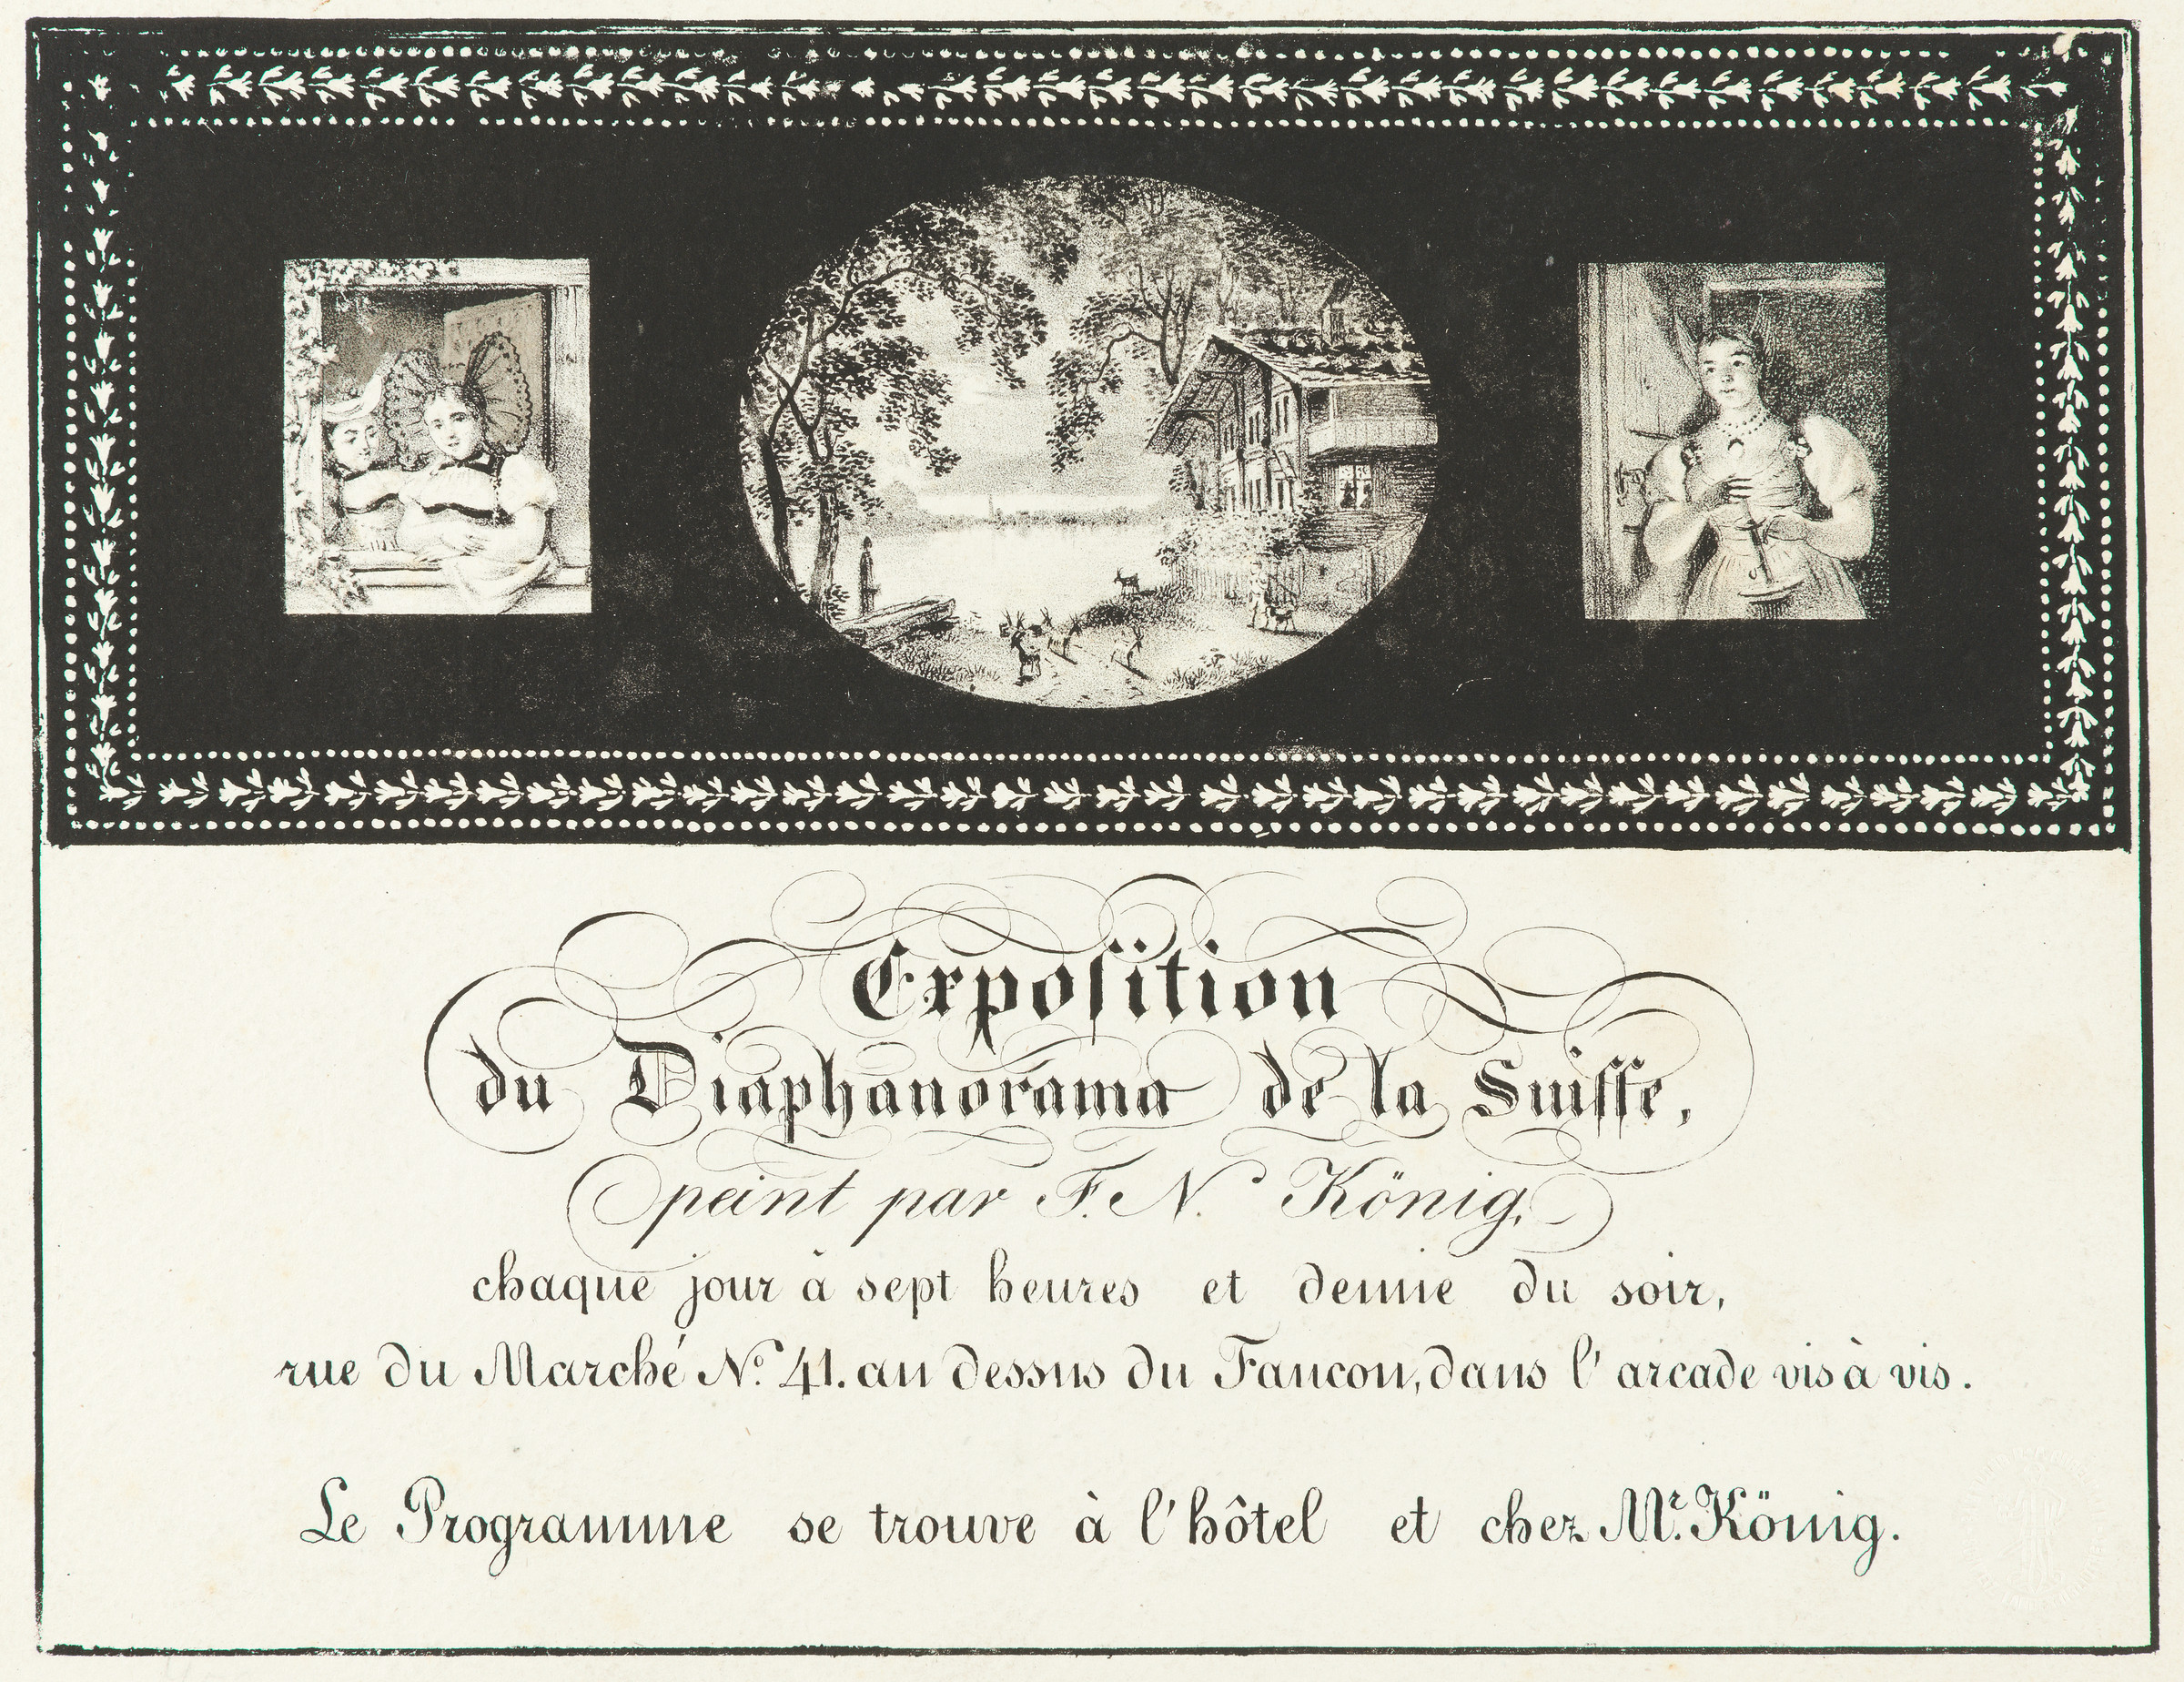 Expoſition
du Diaphanorama de la Suiſſe,
peint par F. N. König,
chaque jour à sept heures et demie du soir,
rue du Marché Nº 41. au dessus du Faucon, dans l'arcade vis à vis.
Le Programme se trouve à l'hôtel et chez Mr. König.